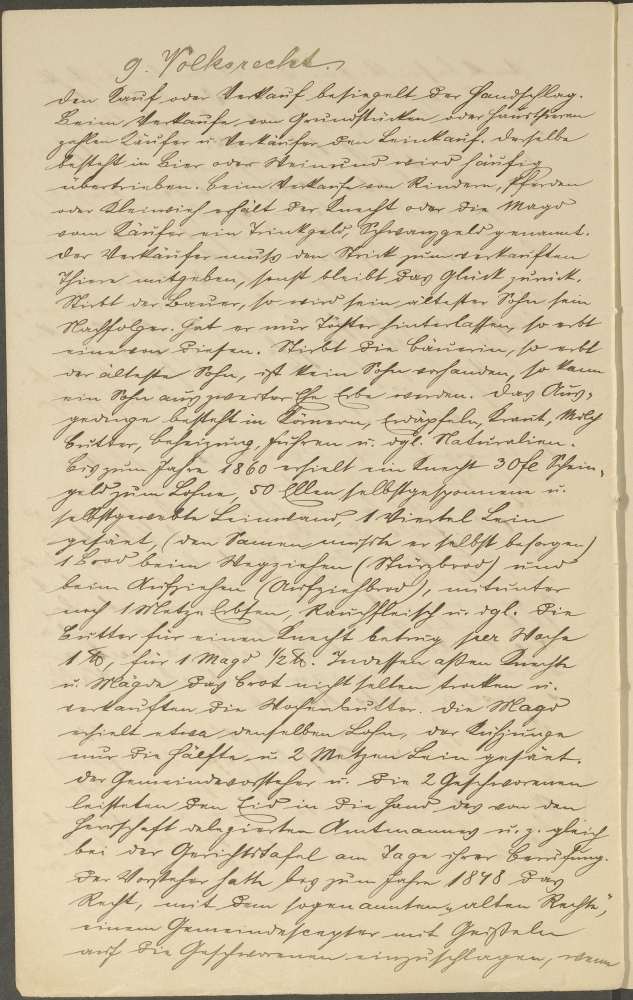 9. Volksrecht.
Den Kauf oder Verkauf besiegelt der Handschlag.
Beim Verkaufe von Grundstücken oder Haustieren
zahlen Käufer u. Verkäufer den Leinkauf. Derselbe
besteht in Bier oder Wein und wird häufig
übertrieben. Beim Verkaufe von Rindern, Pferden
oder Kleinvieh erhält der Knecht oder die Magd
vom Käufer ein Trinkgeld, Schwanzgeld genannt.
Der Verkäufer muß den Strick zum verkauften
Thiere mitgeben, sonst bleibt das Glück zurück.
Stirbt der Bauer, so wird sein ältester Sohn sein
Nachfolger. Hat er nur Töchter hinterlassen, so erbt
eine von diesen. Stirbt die Bäuerin, so erbt
der älteste Sohn, ist kein Sohn vorhanden, so kann
ein Sohn aus zweiter Ehe Erbe werden. Das Aus-
gedinge besteht in Körnern, Erdäpfeln, Kraut, Milch
Butter, Beheizung, Fuhren u. dgl. Naturalien.
Bis zum Jahre 1860 erhielt ein Knecht 30 fl Schein-
geld zum Lohne, 50 Ellen selbstgesponnene u.
selbstgewebte Leinwand, 1 Viertel Lein
gesäet, (den Samen mußte er selbst besorgen)
1 Brod beim Wegziehen (Stürzbrod) und
beim Aufziehen (Aufziehbrod), mitunter
noch 1 Metze Erbsen, Rauchfleisch u. dgl. Die
Butter für einen Knecht betrug per Woche
1 ℔, für 1 Magd 1/2 ℔. Indessen aßen Knechte
u. Mägde das Brot nicht selten trocken u.
verkauften die Wochenbutter. Die Magd
erhielt etwa denselben Lohn, der Kuhjunge
nur die Hälfte u. 2 Metzen Lein gesäet.
Der Gemeindevorsteher u. die 2 Geschworenen
leisteten den Eid in die Hand des von der
Herrschaft delegierten Amtmannes u. z. gleich
bei der Gerichtstafel am Tage ihrer Berufung.
Der Vorsteher hatte bis zum Jahre 1848 das
Recht, mit dem sogenannten „alten Rechte",
einem Gemeindescepter mit Geißeln
auf die Geschworenen einzuschlagen, wenn